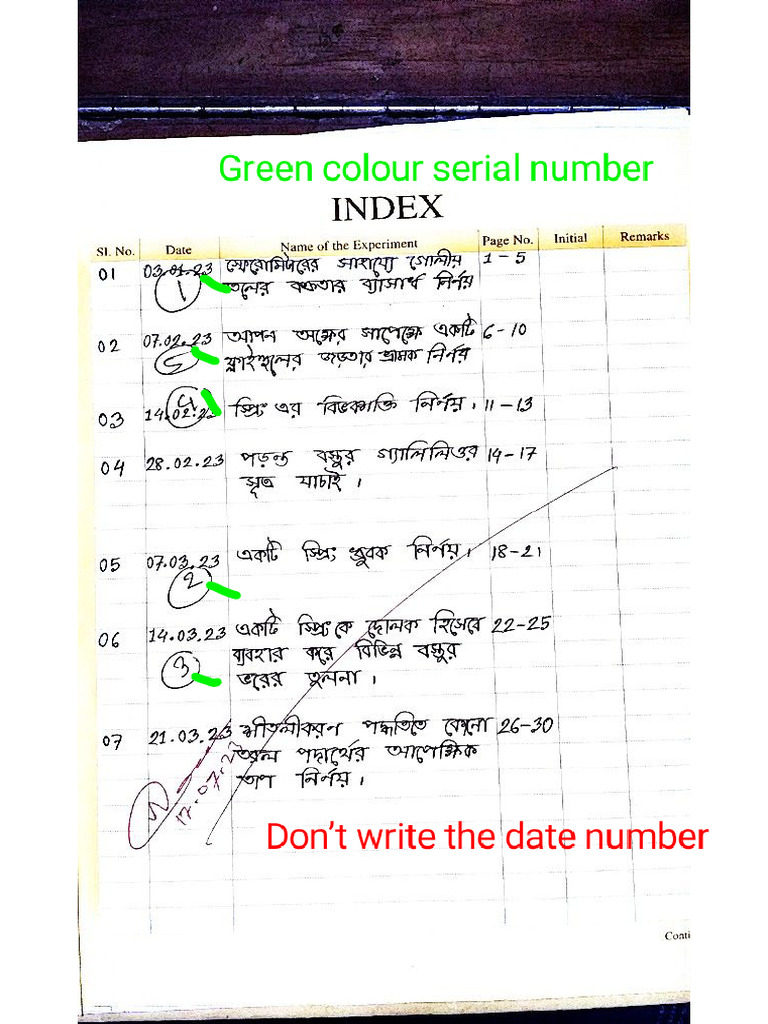 Green colour serial number
INDEX
Sl. No. Date Name of the Experiment Page No. Initial Remarks
01 03.01.23 স্ফেরোমিটারের সাহায্যে গোলীয় 1-5
1 তলের বক্রতার ব্যাসার্ধ নির্নয়
02 07.02.23 আপন অক্ষের সাপেক্ষে একটি 6-10
5 ফ্লাইহুলের জড়তার ভ্রামক নির্নয়
4
03 14.02.23 স্প্রিং এর বিভবশক্তি নির্নয়। 11-13
04 28.02.23 পড়ন্ত বস্তুর গ্যালিলিওর 14-17
সূত্র যাচাই।
05 07.03.23 একটি স্প্রিং ধ্রুবক নির্নয়। 18-21
2
06 14.03.23 একটি স্প্রিং কে দোলক হিসেবে 22-25
ব্যবহার করে বিভিন্ন বস্তুর
3 ভরের তুলনা।
07 21.03.23 শীতলীকরণ পদ্ধতিতে কোনো 26-30
তরল পদার্থের আপেক্ষিক
তাপ নির্নয়।
Don't write the date number
Conti